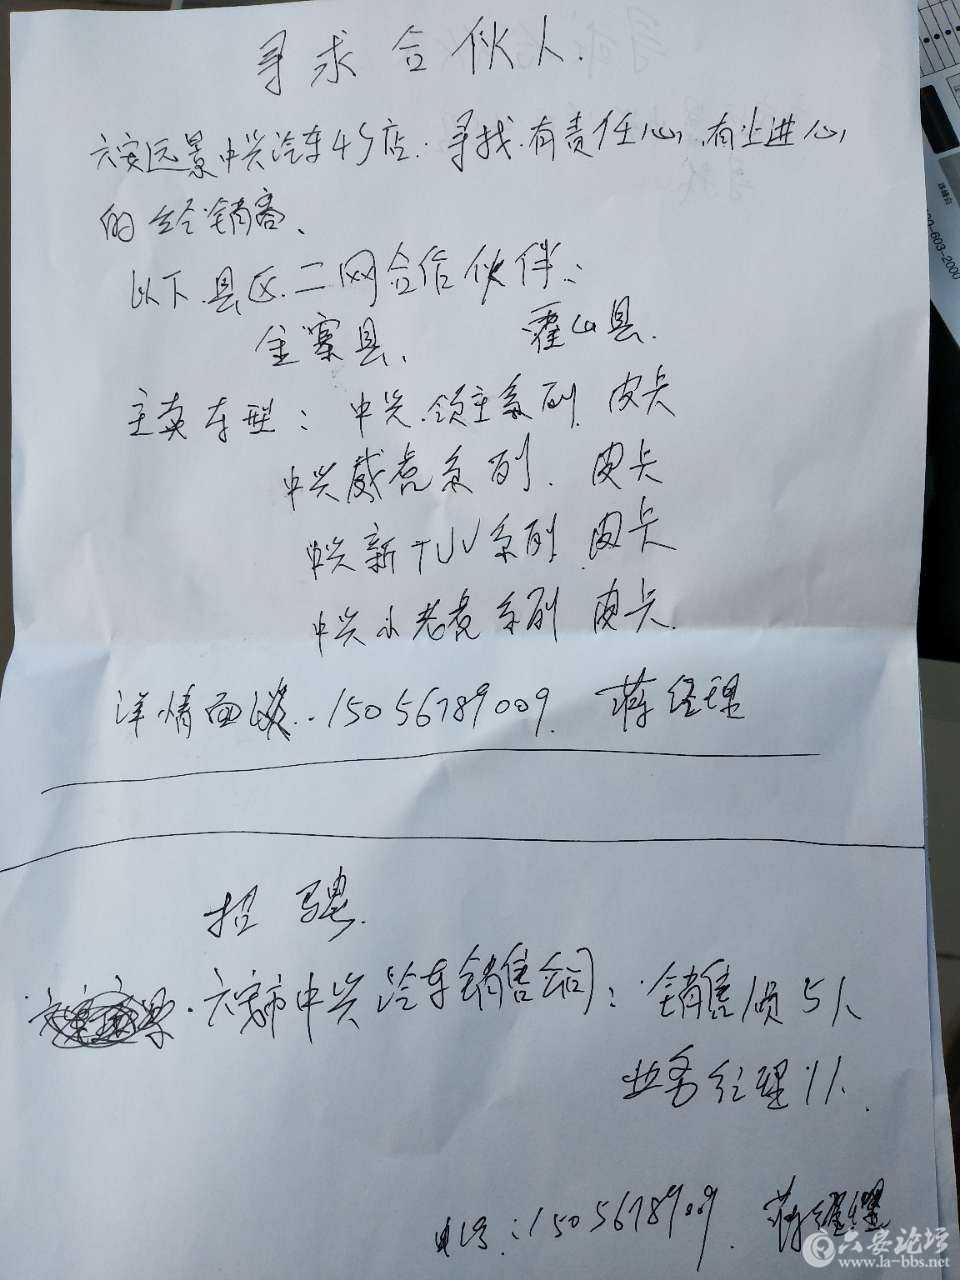 寻求合伙人.
六安远景中兴汽车4S店.寻找.有责任心,有上进心,
的经销商、
以下.县区.二网合作伙伴:
金寨县、 霍山县.
主卖车型: 中兴.领主系列 皮卡
中兴威虎系列. 皮卡
中兴新TUV系列 皮卡
中兴小老虎系列 皮卡.
详情面谈..15056789009. 蒋经理
招聘.
六安市中兴汽车销售公司: 销售员5人
业务经理1人.
电话:15056789009. 蒋经理
六安论坛
www.la-bbs.net
603-2000